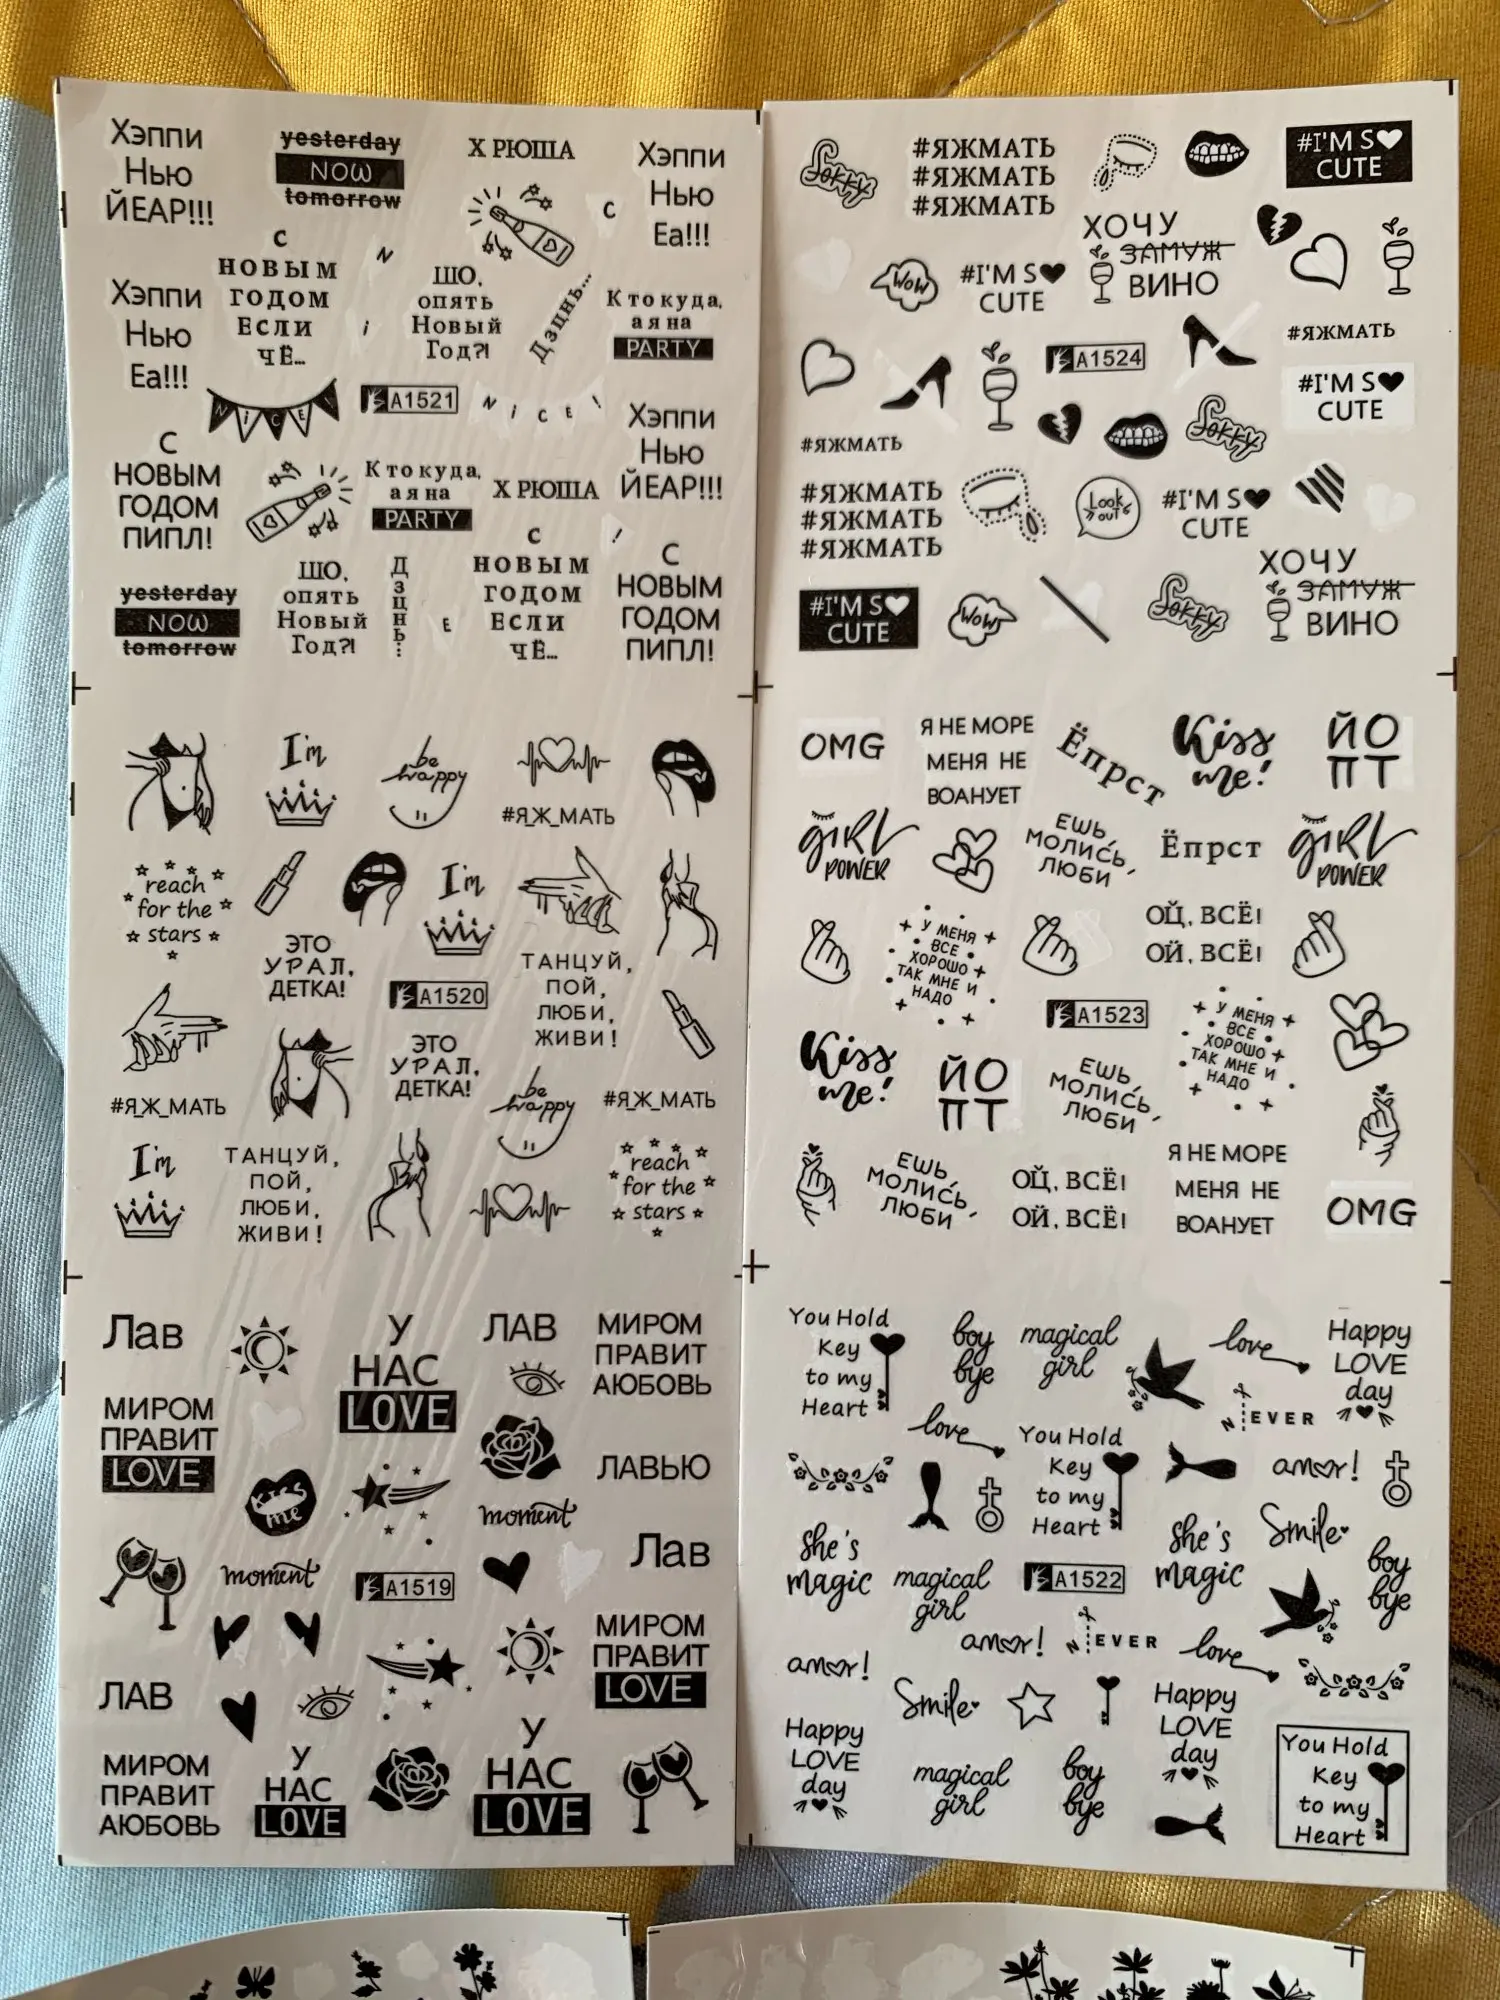 Хэппи
Нью
ЙЕАР!!!
yesterday
NOW
tomorrow
Х РЮША
Хэппи
Нью
Еа!!!
С
С
НОВЫМ
ГОДОМ
ЕСЛИ
ЧЁ...
N
i
ШО,
опять
Новый
Год?!
Дзцнь...
Кто куда,
а я на
PARTY
Хэппи
Нью
Еа!!!
NiCE!
A1521
NiCE!
Хэппи
Нью
ЙЕАР!!!
С
НОВЫМ
ГОДОМ
ПИПЛ!
Кто куда,
а я на
PARTY
Х РЮША
yesterday
NOW
tomorrow
ШО,
опять
Новый
Год?!
Дзцнь...
E
С
НОВЫМ
ГОДОМ
ЕСЛИ
ЧЁ...
!
С
НОВЫМ
ГОДОМ
ПИПЛ!
I'm
be
happy
#Я_Ж_МАТЬ
reach
for the
stars
I'm
ЭТО
УРАЛ,
ДЕТКА!
A1520
ТАНЦУЙ,
ПОЙ,
ЛЮБИ,
ЖИВИ!
ЭТО
УРАЛ,
ДЕТКА!
#Я_Ж_МАТЬ
be
happy
#Я_Ж_МАТЬ
I'm
ТАНЦУЙ,
ПОЙ,
ЛЮБИ,
ЖИВИ!
reach
for the
stars
Лав
У
НАС
LOVE
ЛАВ
МИРОМ
ПРАВИТ
АЮБОВЬ
МИРОМ
ПРАВИТ
LOVE
ЛАВЬЮ
kiss
me
moment
moment
A1519
Лав
МИРОМ
ПРАВИТ
LOVE
ЛАВ
МИРОМ
ПРАВИТ
АЮБОВЬ
У
НАС
LOVE
У
НАС
LOVE
#ЯЖМАТЬ
#ЯЖМАТЬ
#ЯЖМАТЬ
#I'M S
CUTE
Wow
#I'M S
CUTE
ХОЧУ
ЗАМУЖ
ВИНО
A1524
#ЯЖМАТЬ
#I'M S
CUTE
#ЯЖМАТЬ
#ЯЖМАТЬ
#ЯЖМАТЬ
#ЯЖМАТЬ
Look
out
#I'M S
CUTE
#I'M S
CUTE
Wow
ХОЧУ
ЗАМУЖ
ВИНО
OMG
Я НЕ МОРЕ
МЕНЯ НЕ
ВОАНУЕТ
Ёпрст
Kiss
me!
ЙО
ПТ
GiRL
POWER
ЕШЬ,
МОЛИСЬ,
ЛЮБИ
Ёпрст
GiRL
POWER
У МЕНЯ
ВСЕ
ХОРОШО
ТАК МНЕ И
НАДО
ОЙ, ВСЁ!
ОЙ, ВСЁ!
A1523
У МЕНЯ
ВСЕ
ХОРОШО
ТАК МНЕ И
НАДО
Kiss
me!
ЙО
ПТ
ЕШЬ,
МОЛИСЬ,
ЛЮБИ
ЕШЬ,
МОЛИСЬ,
ЛЮБИ
ОЙ, ВСЁ!
ОЙ, ВСЁ!
Я НЕ МОРЕ
МЕНЯ НЕ
ВОАНУЕТ
OMG
You Hold
Key
to my
Heart
boy
bye
magical
girl
love
Happy
LOVE
day
NEVER
love
You Hold
Key
to my
Heart
amor!
she's
magic
magical
girl
A1522
she's
magic
Smile
boy
bye
amor!
amor!
NEVER
love
Smile
Happy
LOVE
day
Happy
LOVE
day
magical
girl
boy
bye
You Hold
Key
to my
Heart